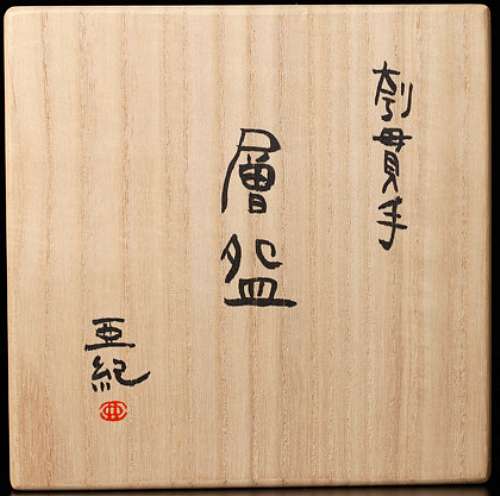 刳貫手
層盌
亜紀
亜